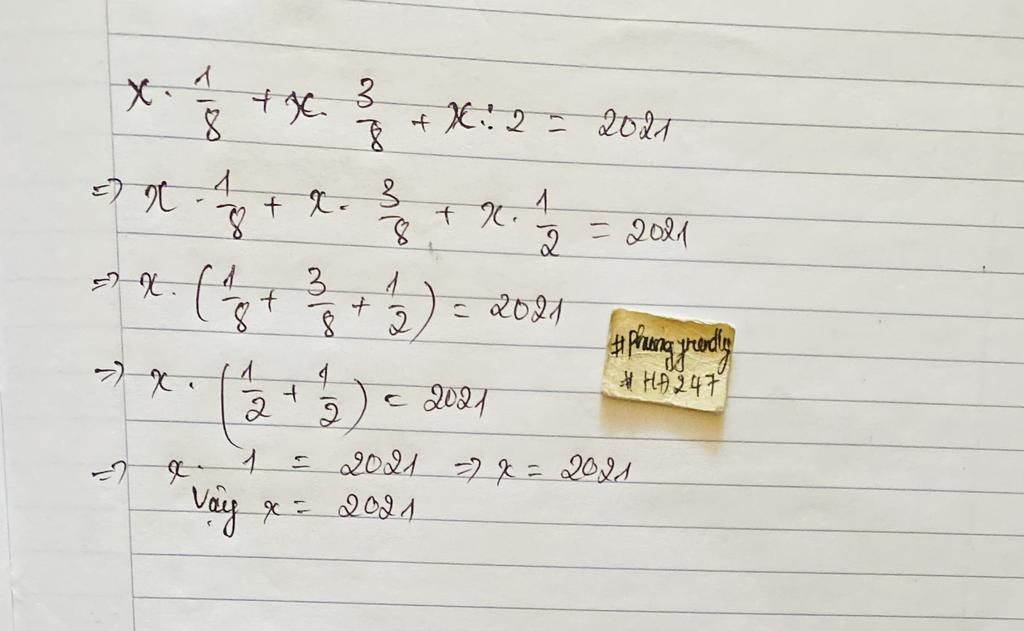 x · 1/8 + x · 3/8 + x : 2 = 2021
=> x · 1/8 + x · 3/8 + x · 1/2 = 2021
=> x · (1/8 + 3/8 + 1/2) = 2021
=> x · (1/2 + 1/2) = 2021
=> x · 1 = 2021 => x = 2021
Vậy x = 2021
# HA247